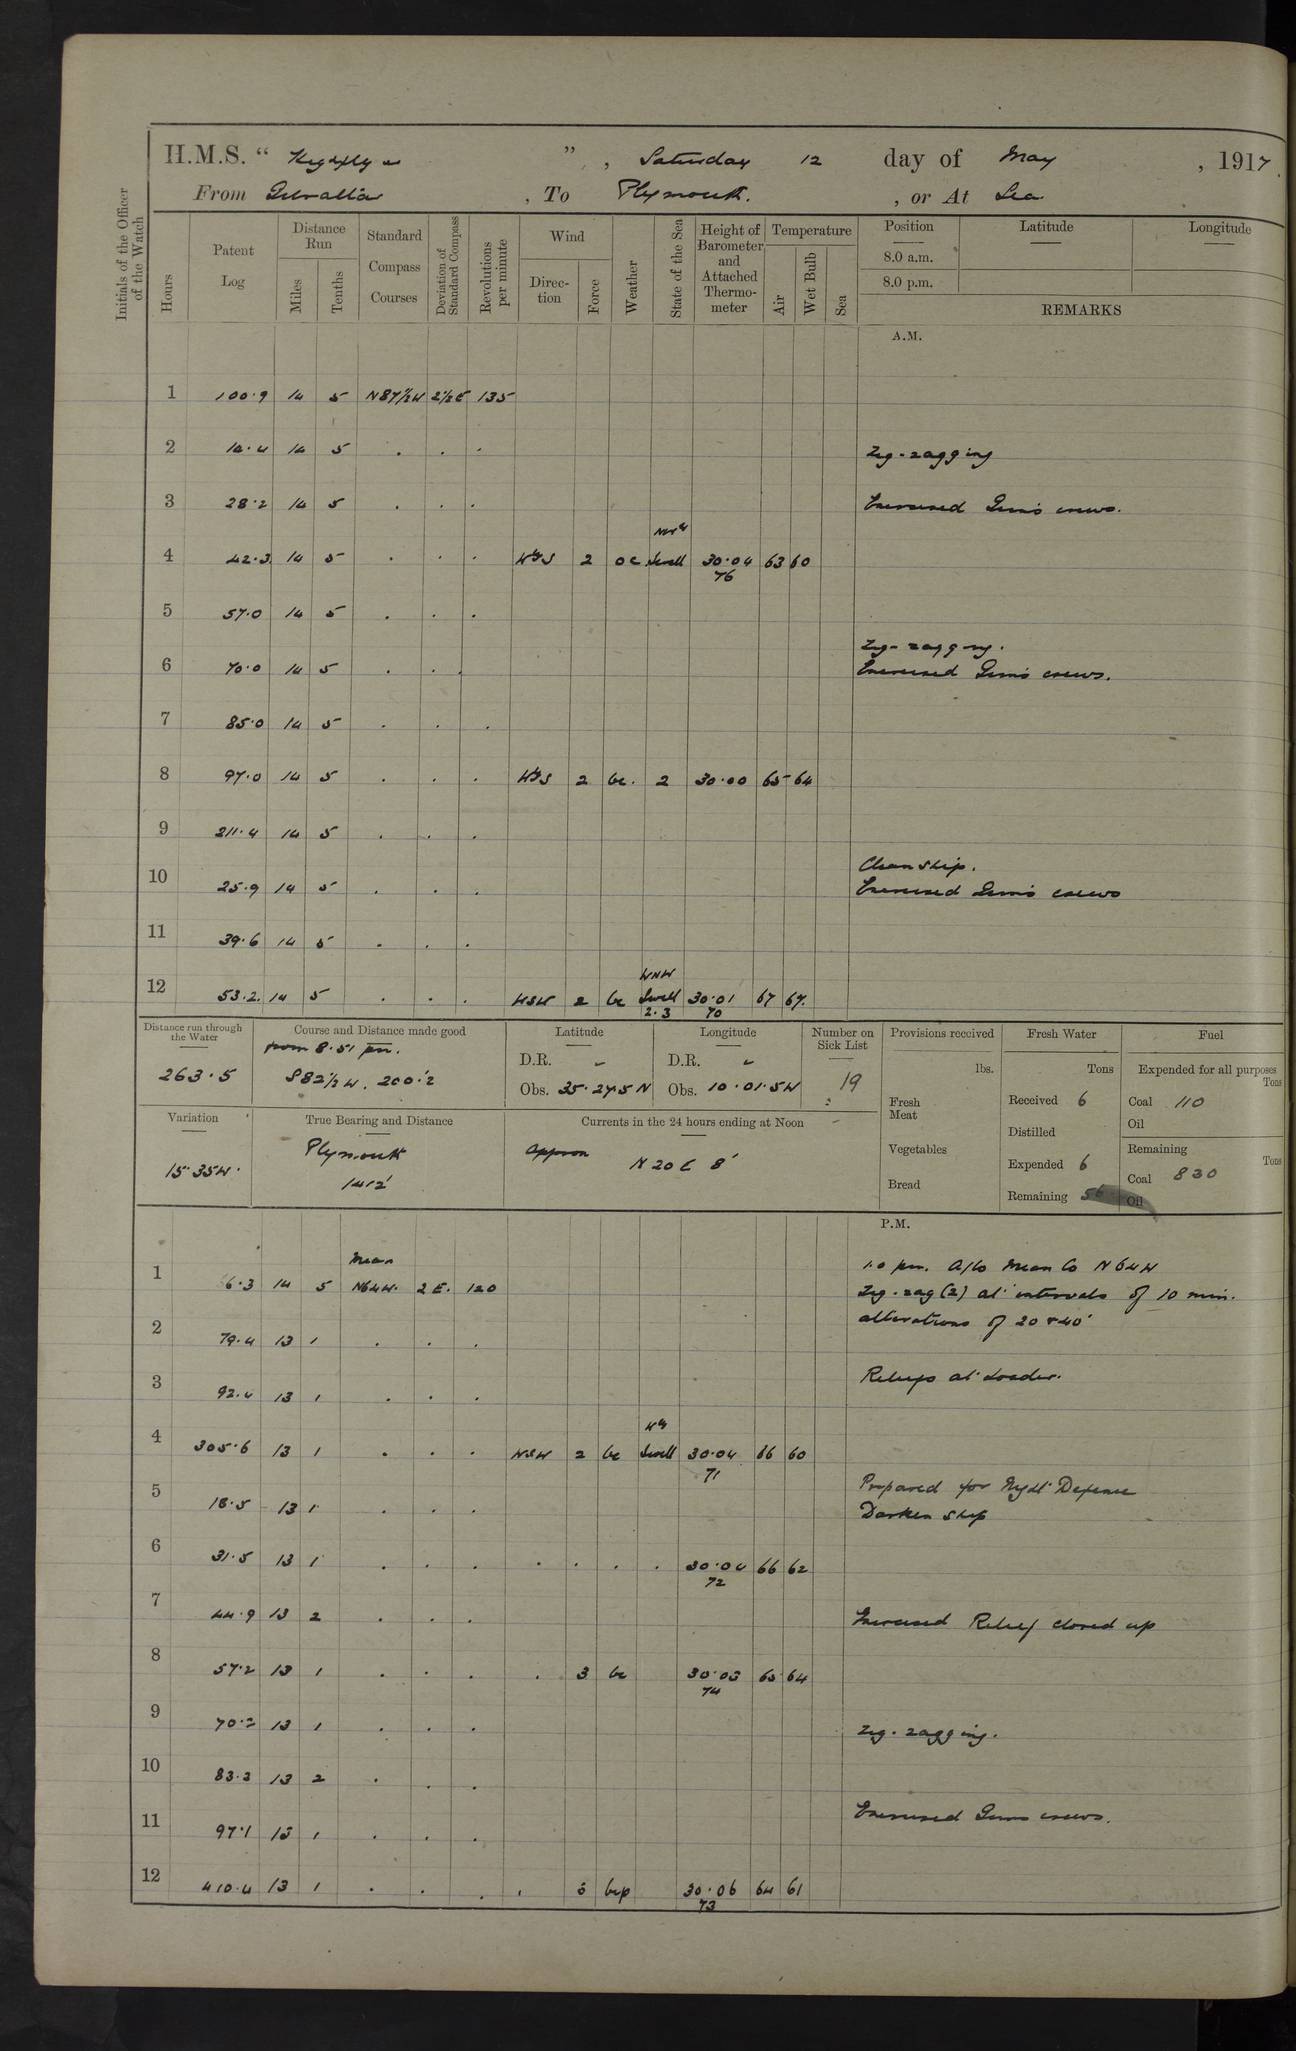 H.M.S. " ", Saturday 12 day of May, 1917.
From Gibraltar, To Plymouth., or At Sea
Initials of the Officer of the Watch
Hours
Patent Log
Distance Run
Miles
Tenths
Standard Compass Courses
Deviation of Standard Compass
Revolutions per minute
Wind
Direction
Force
Weather
State of the Sea
Height of Barometer and Attached Thermometer
Temperature
Air
Wet Bulb
Sea
Position
8.0 a.m.
8.0 p.m.
Latitude
Longitude
REMARKS
A.M.
1 100.9 14 5 N87½W 2½E 135
2 14.4 14 5 . . . Zig-zagging
3 28.2 14 5 . . . Exercised Guns crews.
4 42.3 14 5 . . . WbyS 2 oc NWly Swell 30.04 76 63 60
5 57.0 14 5 . . .
Zig-zagging.
6 70.0 14 5 . . . Exercised Guns crews.
7 85.0 14 5 . . .
8 97.0 14 5 . . . WbyS 2 bc. 2 30.00 65 64
9 211.4 14 5 . . .
Clean Ship.
10 25.9 14 5 . . . Exercised Guns crews
11 39.6 14 5 . . .
12 53.2 14 5 . . . WSW 2 bc WNW Swell 2.3 30.01 70 67 67.
Distance run through the Water
263.5
Course and Distance made good
from 8.51 pm.
S82½W. 200.2
Latitude
D.R. -
Obs. 35.27.5 N
Longitude
D.R. -
Obs. 10.01.5W
Number on Sick List
19
Provisions received
lbs.
Fresh Meat
Vegetables
Bread
Fresh Water
Tons
Received 6
Distilled
Expended 6
Remaining 56
Fuel
Expended for all purposes
Tons
Coal 110
Oil
Remaining
Tons
Coal 830
Oil
Variation
15.35W.
True Bearing and Distance
Plymouth
1412'
Currents in the 24 hours ending at Noon
approx
N 20 E 8'
P.M.
1 6.3 14 5 Mean N64W. 2E. 120 1.0 pm. A/Co Mean Co N64W
Zig-zag (2) at intervals of 10 min.
alterations of 20 & 40°
2 79.4 13 1 . . .
3 92.4 13 1 . . . Reliefs at Loader.
4 305.6 13 1 . . . WSW 2 bc Wly Swell 30.04 71 66 60
5 18.5 13 1 . . . Prepared for Night Defence
Darken Ship
6 31.5 13 1 . . . . . . . 30.04 72 66 62
7 44.9 13 2 . . . Exercised Relief closed up
8 57.2 13 1 . . . . 3 bc 30.03 74 65 64
9 70.2 13 1 . . . Zig-zagging.
10 83.3 13 2 . . .
11 97.1 13 1 . . . Exercised Guns crews.
12 410.4 13 1 . . . . 3 bcp 30.06 73 64 61